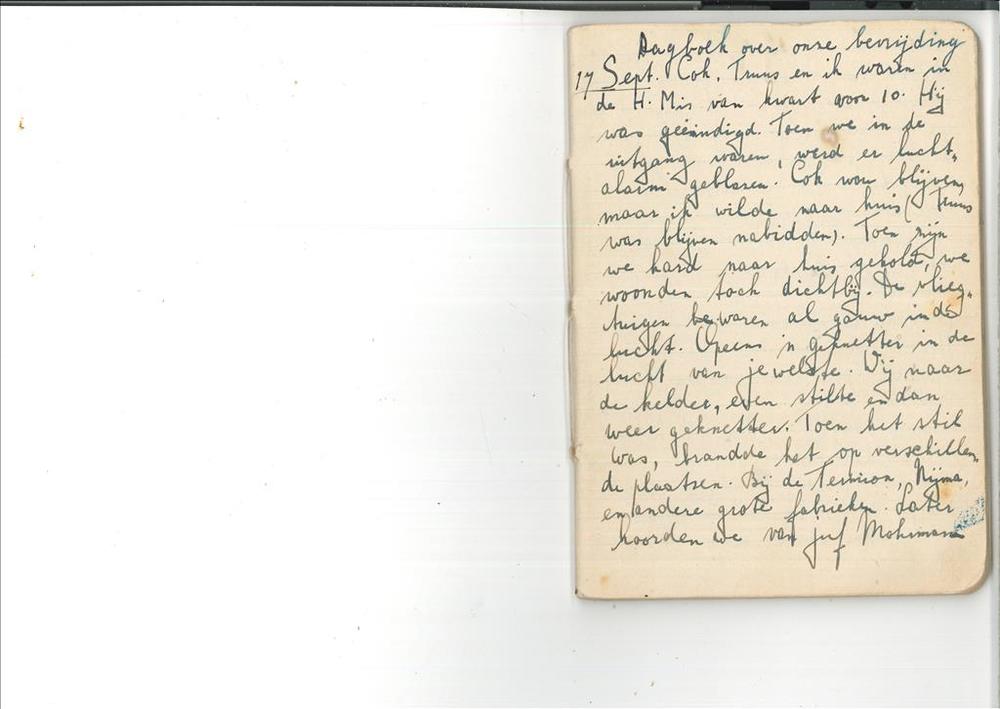 Dagboek over onze bevrijding
17 Sept. Cok, Truus en ik waren in
de H. Mis van kwart voor 10. Hij
was geëindigd. Toen we in de
uitgang waren, werd er lucht-
alarm geblazen. Cok wou blijven,
maar ik wilde naar huis (Truus
was blijven nabidden). Toen zijn
we hard naar huis gehold, we
woonden toch dichtbij. De vlieg-
tuigen waren al gauw in de
lucht. Opeens 'n geknetter in de
lucht van jewelste. Wij naar
de kelder, even stilte en dan
weer geknetter. Toen het stil
was, brandde het op verschillen-
de plaatsen. Bij de Terwion, Nijma,
en andere grote fabrieken. Later
hoorden we van juf Mohrmann